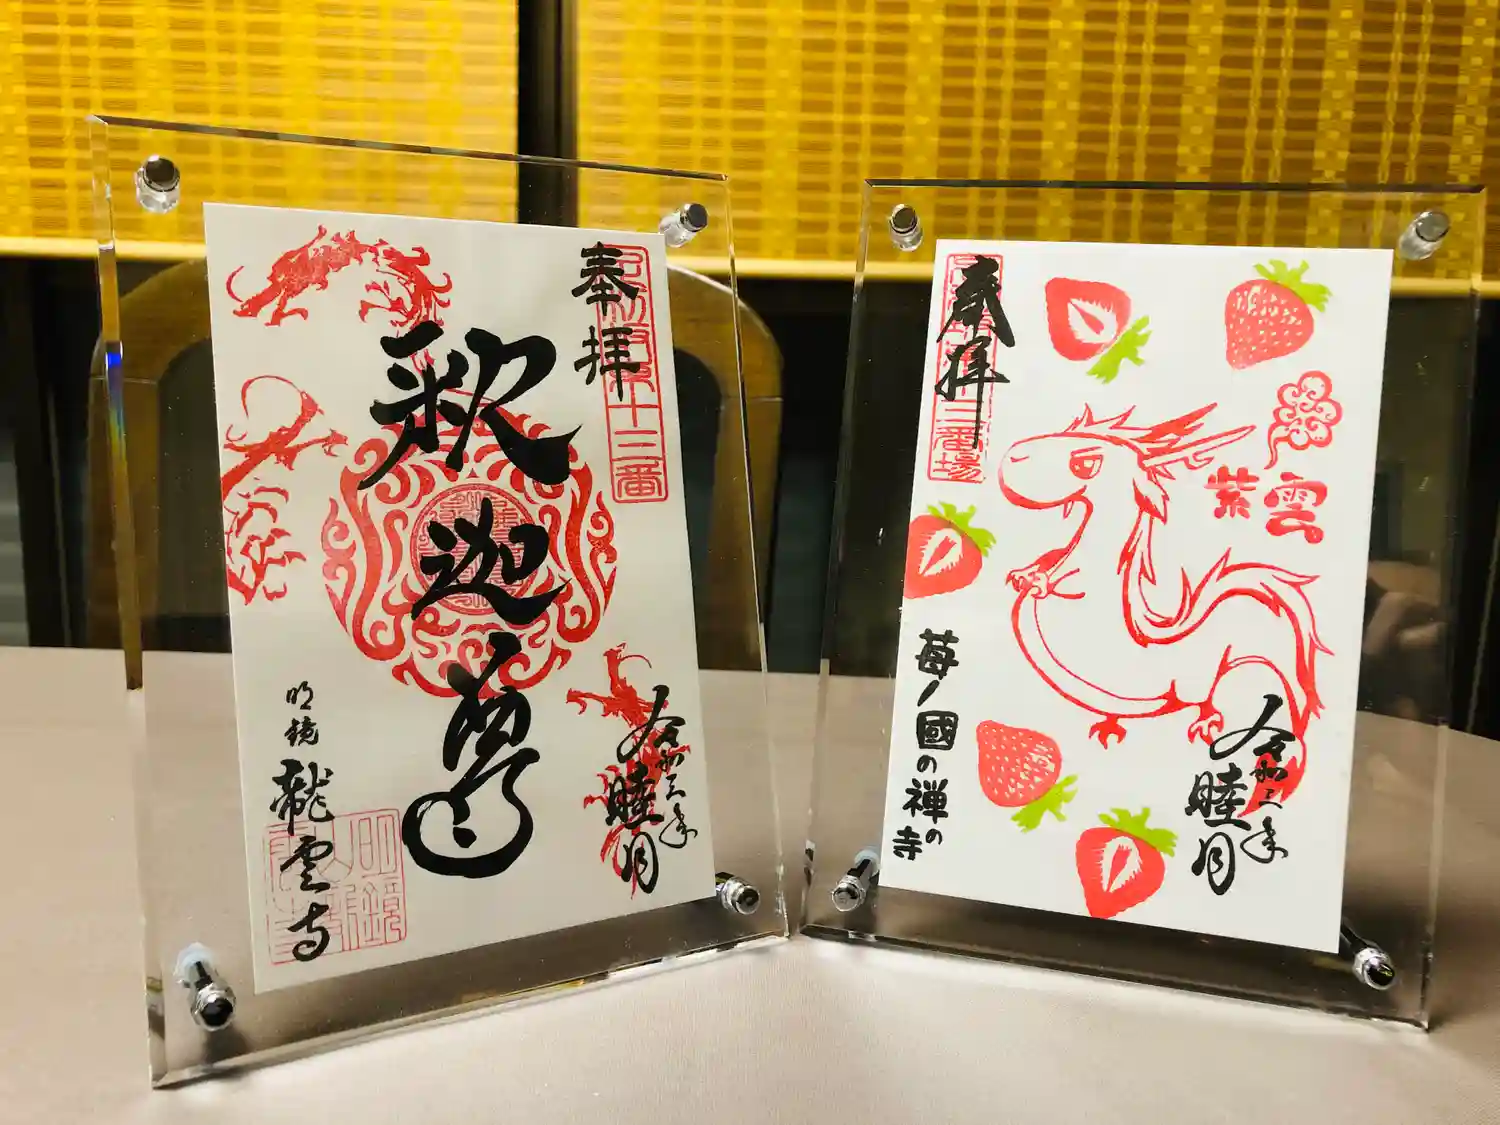 奉拝
十三番
釈迦尊
令和三年
睦月
明鏡
龍雲寺
奉拝
十三番場
紫雲
令和三年
睦月
苺ノ國の禅の寺